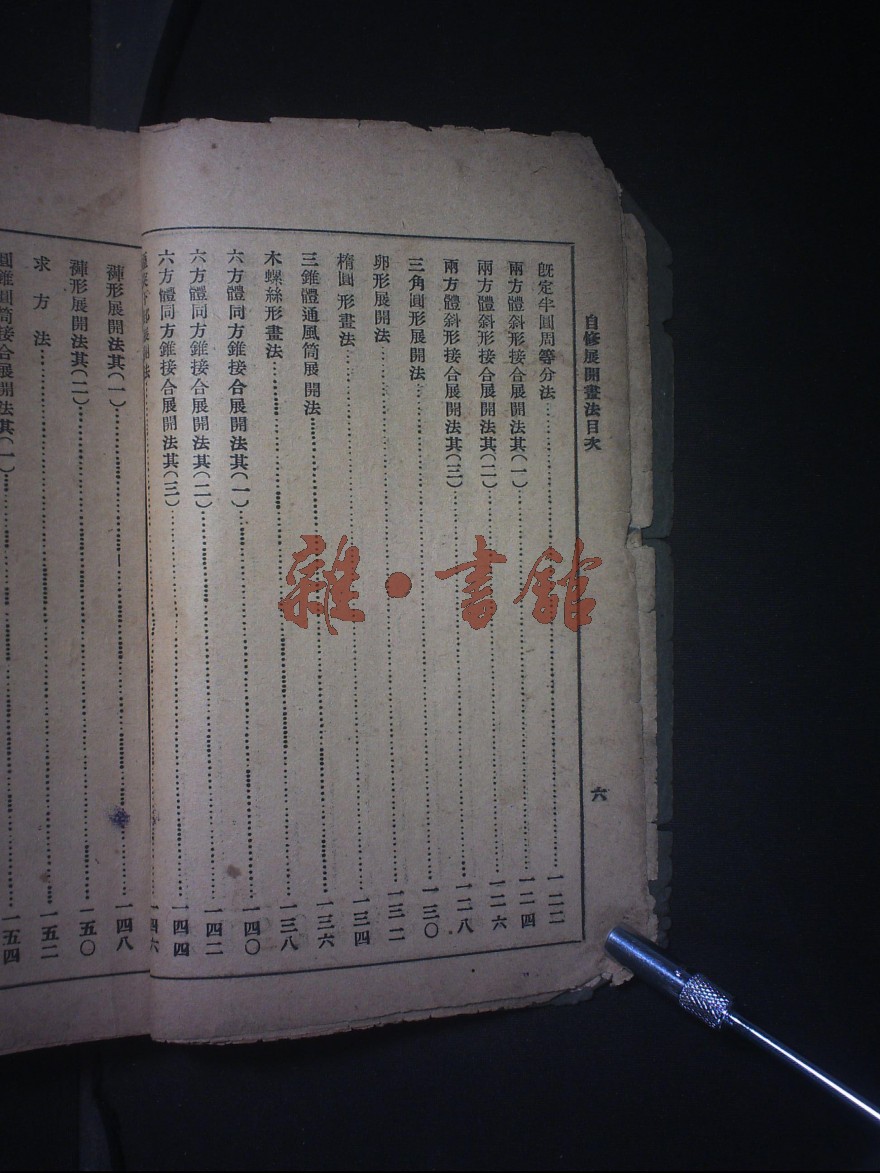 自修展開畫法目次
六
旣定半圓周等分法…一二二
兩方體斜形接合展開法其(一)…一二四
兩方體斜形接合展開法其(二)…一二六
兩方體斜形接合展開法其(三)…一二八
三角圓形展開法…一三〇
卵形展開法…一三二
橢圓形畫法…一三四
三錐體通風筒展開法…一三六
木螺絲形畫法…一三八
六方體同方錐接合展開法其(一)…一四〇
六方體同方錐接合展開法其(二)…一四二
六方體同方錐接合展開法其(三)…一四四
法…四六
褲形展開法其(一)…一四八
褲形展開法其(二)…一五〇
求方法…一五二
圓錐圓筒接合展開法其(一)…一五四
雜·書館